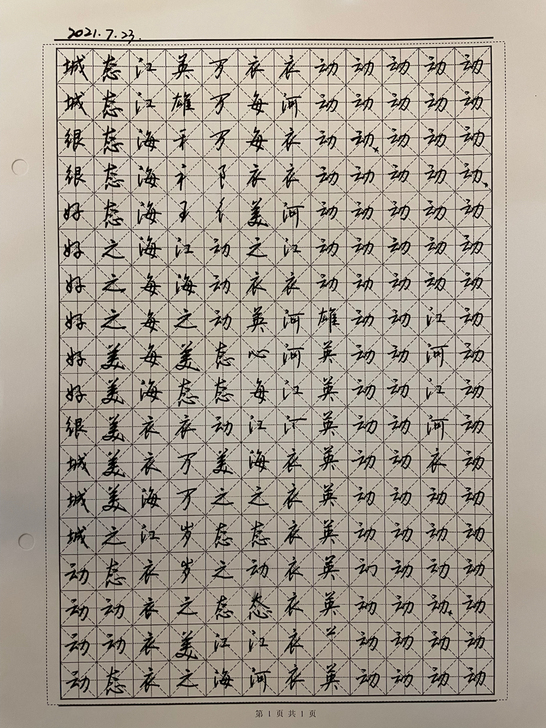 2021.7.23.
城态江英万衣衣动动动动动
城态江雄万每河动动动动动
很态海万每衣动动动动动
很态海衣衣动动动动动
好态海美河动动动动动
好之海江动之江动动动动动
好之每海动衣衣动动动动动
好之每之动英河雄动动江动
好美每美态心河英动动河动
好美海态态每江英动动江动
很美衣衣动江河英动动河动
城美衣万美海衣英动动衣动
城美海万之之衣英动动动动
城之江岁态态衣英动动动动
动态衣岁之动衣英动动动动
动动衣之态态衣英动动动动
动动衣美江江衣动动动动
动态衣之海河衣英动动动动
第 1 页 共 1 页